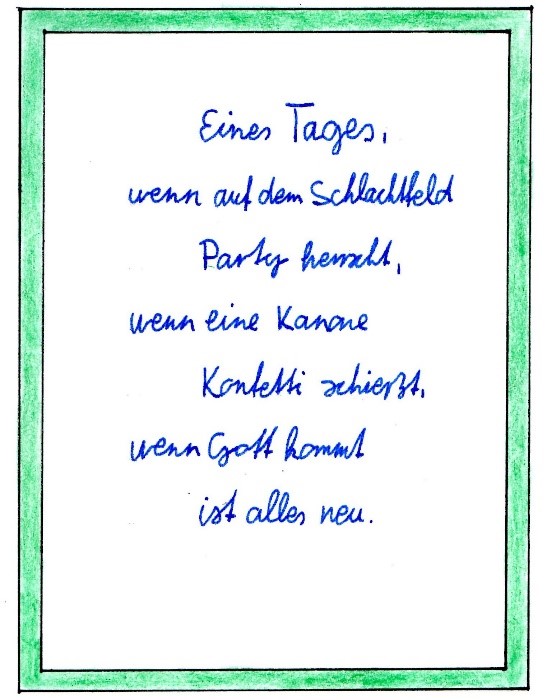 Eines Tages,
wenn auf dem Schlachtfeld
Party herrscht,
wenn eine Kanone
Konfetti schießt,
wenn Gott kommt
ist alles neu.